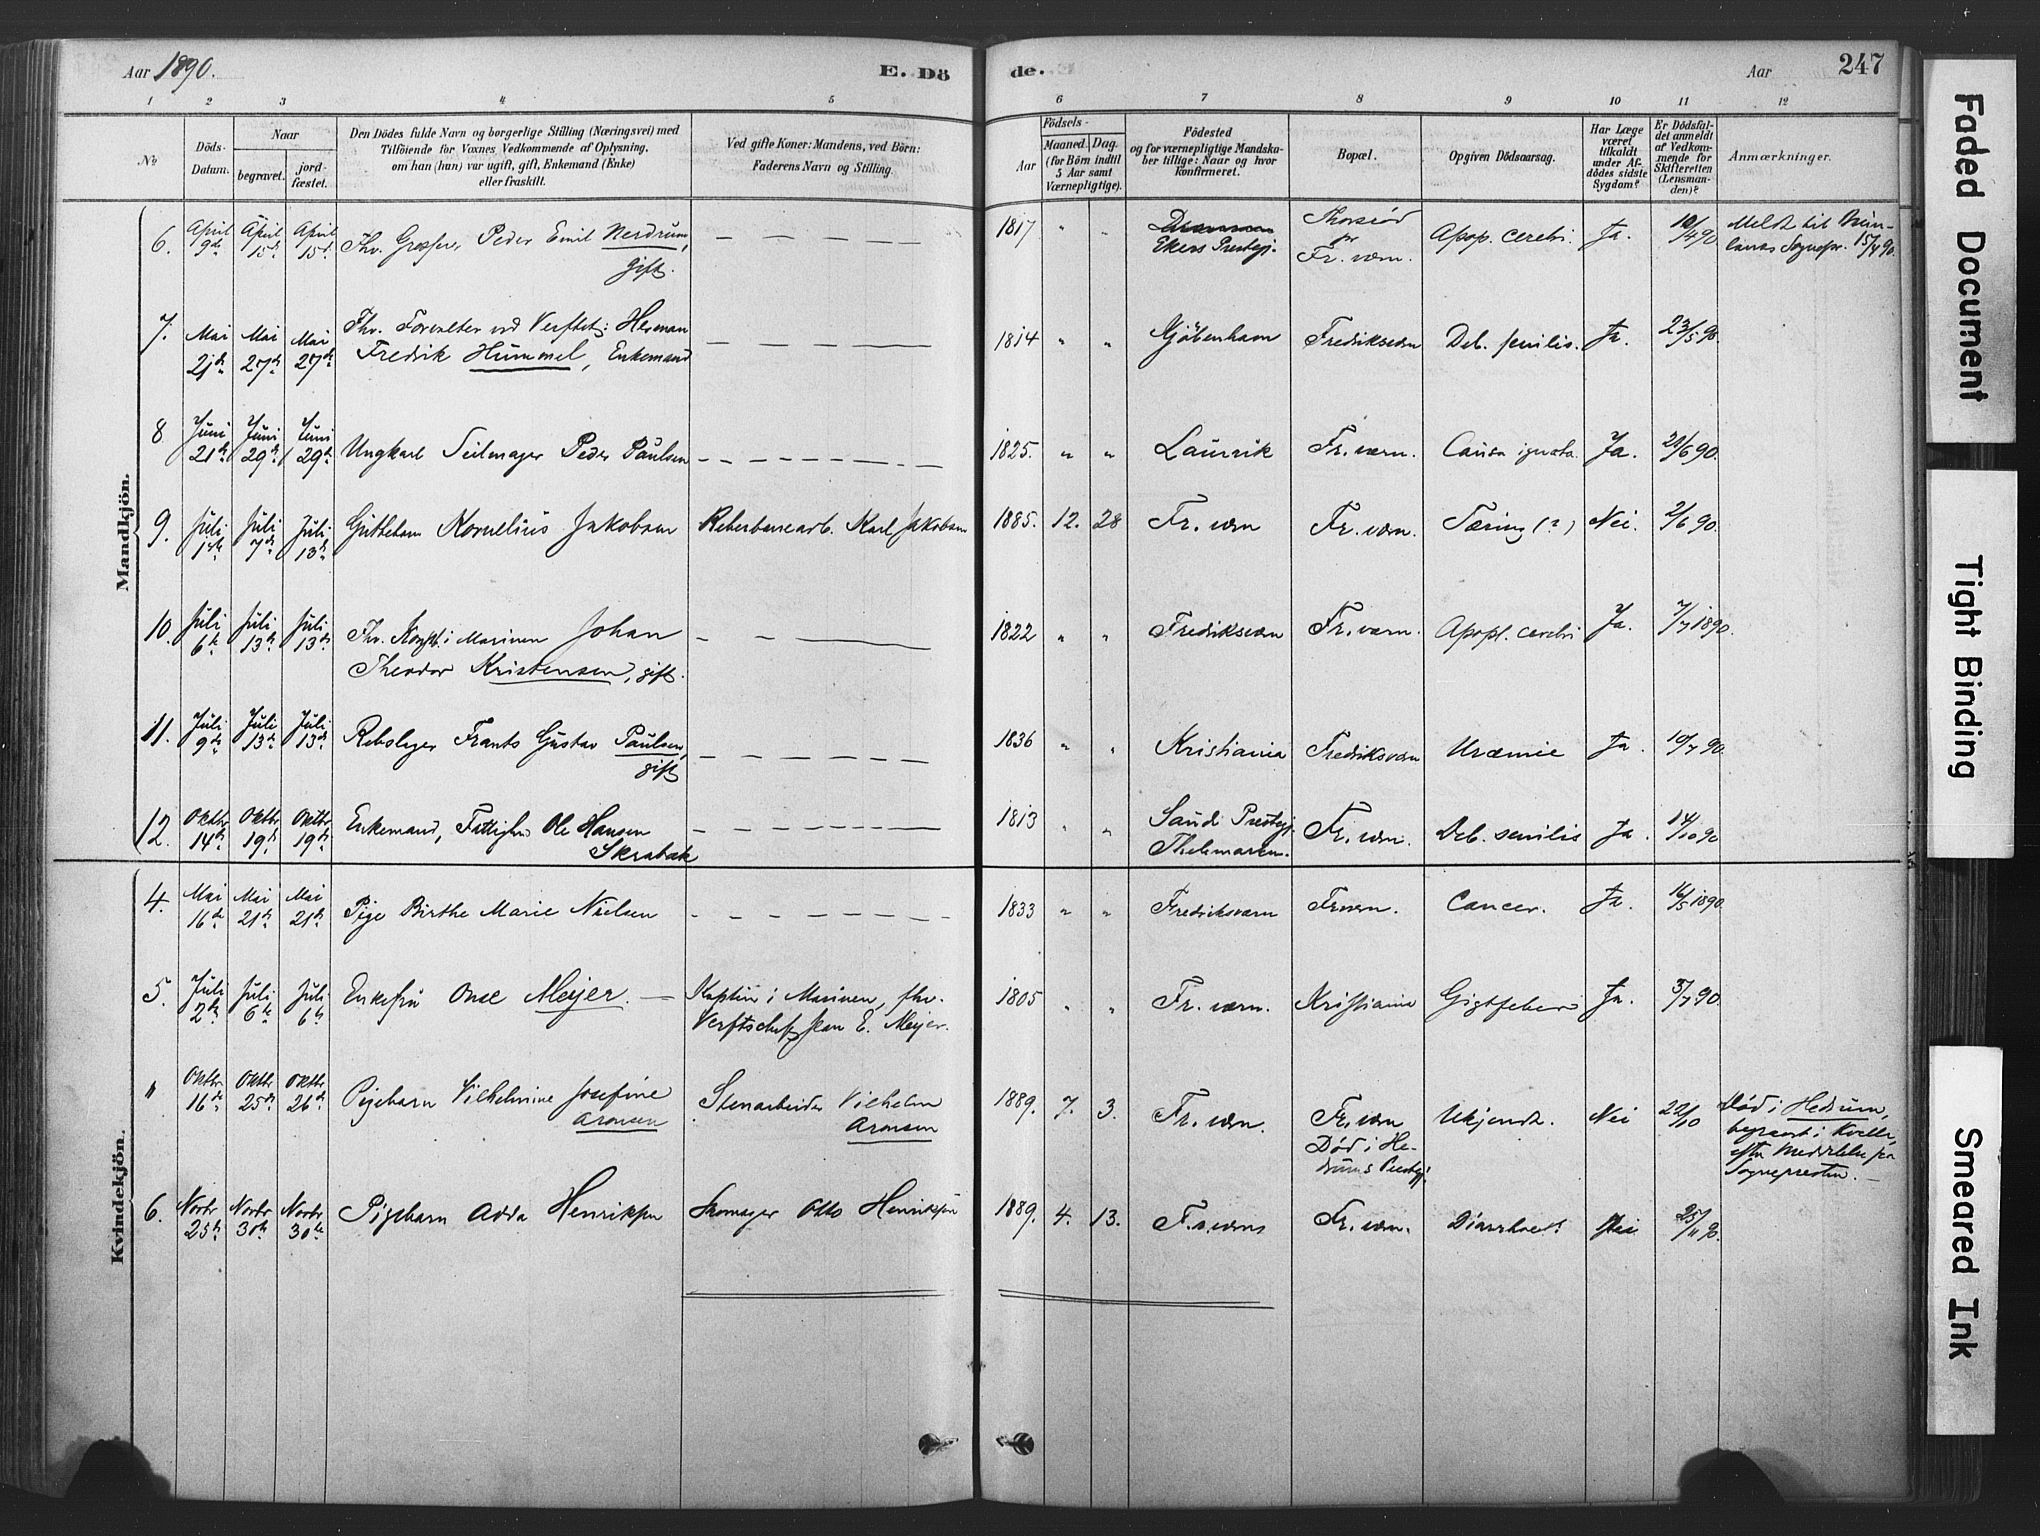 Aar 1890.
E. Dö
de.
Aar
247
1 2 3 4 5 6 7 8 9 10 11 12
No
Döds-Datum.
Naar
begravet.
jord-fæstet.
Den Dödes fulde Navn og borgerlige Stilling (Næringsvei) med
Tilföiende for Voxnes Vedkommende af Oplysning,
om han (hun) var ugift, gift, Enkemand (Enke)
eller fraskilt.
Ved gifte Koner: Mandens, ved Börn:
Faderens Navn og Stilling.
Födsels-
Aar
Maaned. Dag.
(for Börn indtil
5 Aar samt
Værnepligtige).
Födested
og for værnepligtige Mandska-
ber tillige: Naar og hvor
konfirmeret.
Bopæl.
Opgiven Dödsaarsag.
Har Læge
været
tilkaldt
under Af-
dödes sidste
Sygdom?
Er Dödsfal-
det anmeldt
af Vedkom-
mende for
Skifteretten
(Lensman-
den)?
Anmærkninger.
Mandkjön.
6. April 9de April 15de April 15de Fhv. Peder Emil Nerdrum, gift. 1817 " " Drammen Ekers Prestegj. Fr. værn. Apop. cerebri Ja. 10/4 90 Meldt til Sognepr. 15/4 90.
7. Mai 21de Mai 27de Mai 27de Fhv. Forvalter ved Verftet: Herman
Fredrik Hummel, Enkemand 1814 " " Kjöbenhavn Fredriksværn Deb. senilis. Ja. 23/5 90
8 Juni 21de Juni 29de Juni 29de Ungkarl Seilmager Peder Paulsen 1825. " " Laurvik Fr. værn. Causa ignota. Ja. 21/6 90.
9. Juli 1ste Juli 7de Juli 13de Guttebarn Kornelius Jakobsen Reberbanearb. Karl Jakobsen 1885. 12. 28 Fr. værn Fr. værn. Tæring (?) Nei. 2/6 90.
10. Juli 6te Juli 13de Juli 13de Fhv. i Marinen Johan
Theodor Kristensen, gift. 1822 " " Fredriksværn Fr. værn. Apopl. cerebri Ja. 7/7 1890.
11. Juli 9de Juli 13de Juli 13de Rebslager Frants Gustav Paulsen, gift 1836 " " Kristiania Fredriksværn Uræmie Ja. 10/7 90.
12. Oktbr 14de Oktbr 19de Oktbr 19de Enkemand, Fattiglem Ole Hansen
Skrabak 1813 " " Saude Prestegj. Thelemarken. Fr. værn. Deb. senilis Ja. 14/10 90
Kvindekjön.
4. Mai 16de Mai 21de Mai 21de Pige Birthe Marie Nielsen 1833 " " Fredriksværn Fr.værn. Cancer. Ja. 16/5 1890.
5. Juli 2den Juli 6te Juli 6te Enkefru Meyer. Kaptein i Marinen, fhv.
Verftschef Jean E. Meyer. 1805 " " Fr. værn. Kristiania Gigtfeber Ja. 3/7 90.
" Oktbr 16de Oktbr 25de Oktbr 26de Pigebarn Vilhelmine Josefine
Aronsen Stenarbeider Vilhelm
Aronsen 1889. 7. 3. Fr. værn. Fr. værn
Död i He-
drums Prestegj. Ukjendt. Nei 22/10 Död i Hedrum,
begravet i Kvelle,
efter Meddelelse fra
Sognepresten.
6. Novbr 25de Novbr 30te Novbr 30te Pigebarn Adda Henriksen Skomager Otto Henriksen 1889. 4. 13. Fr. værn Fr. værn. Diarrhoe Nei 25/11 90.
Faded Document
Tight Binding
Smeared Ink